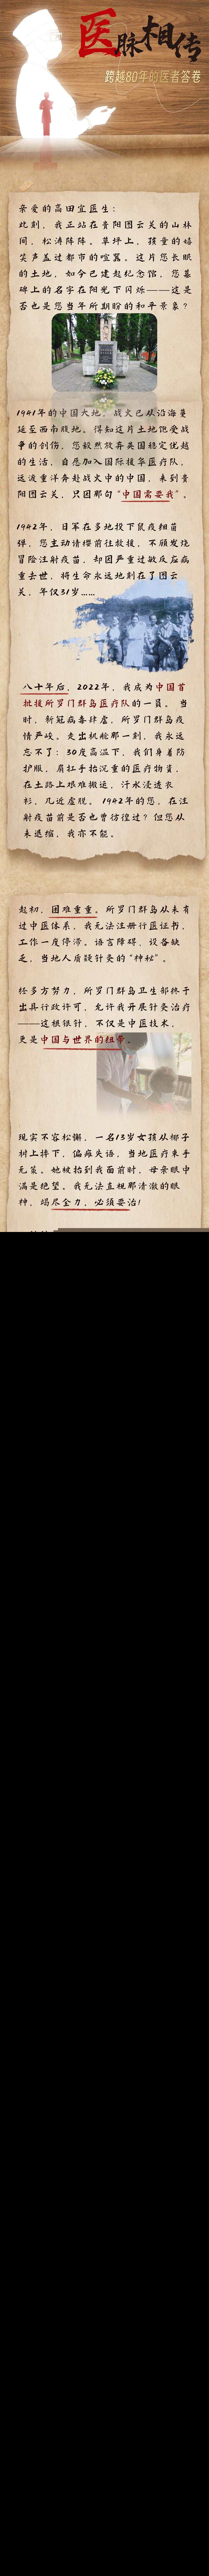 医脉相传
跨越80年的医者答卷
亲爱的高田宜医生：
此刻，我正站在贵阳图云关的山林
间，松涛阵阵。草坪上，孩童的嬉
笑声盖过都市的喧嚣，这片您长眠
的土地，如今已建起纪念馆，您墓
碑上的名字在阳光下闪烁——这是
否也是您当年所期盼的和平景象？
1941年的中国大地，战火已从沿海蔓
延至西南腹地。得知这片土地饱受战
争的创伤，您毅然放弃英国稳定优越
的生活，自愿加入国际援华医疗队，
远渡重洋奔赴战火中的中国，来到贵
阳图云关，只因那句“中国需要我”。
1942年，日军在多地投下鼠疫细菌
弹，您主动请缨前往救援，不顾发烧
冒险注射疫苗，却因严重过敏反应病
重去世，将生命永远地刻在了图云
关，年仅31岁……
八十年后，2022年，我成为中国首
批援所罗门群岛医疗队的一员。当
时，新冠病毒肆虐，所罗门群岛疫
情严峻。走出机舱那一刻，我永远
忘不了：30度高温下，我们身着防
护服，肩扛手抬沉重的医疗物资，
在土路上艰难搬运，汗水浸透衣
衫，几近虚脱。1942年的您，在注
射疫苗前是否也曾彷徨过？但您从
未退缩，我亦不能。
起初，困难重重。所罗门群岛从未有
过中医体系，我无法注册行医证书，
工作一度停滞。语言障碍，设备缺
乏，当地人质疑针灸的“神秘”。
经多方努力，所罗门群岛卫生部终于
出具行政许可，允许我开展针灸治疗
——这根银针，不仅是中医技术，
更是中国与世界的纽带。
现实不容松懈，一名13岁女孩从椰子
树上摔下，偏瘫失语，当地医疗束手
无策。她被抬到我面前时，母亲眼中
满是绝望。我无法直视那清澈的眼
神，竭尽全力，必须要治！